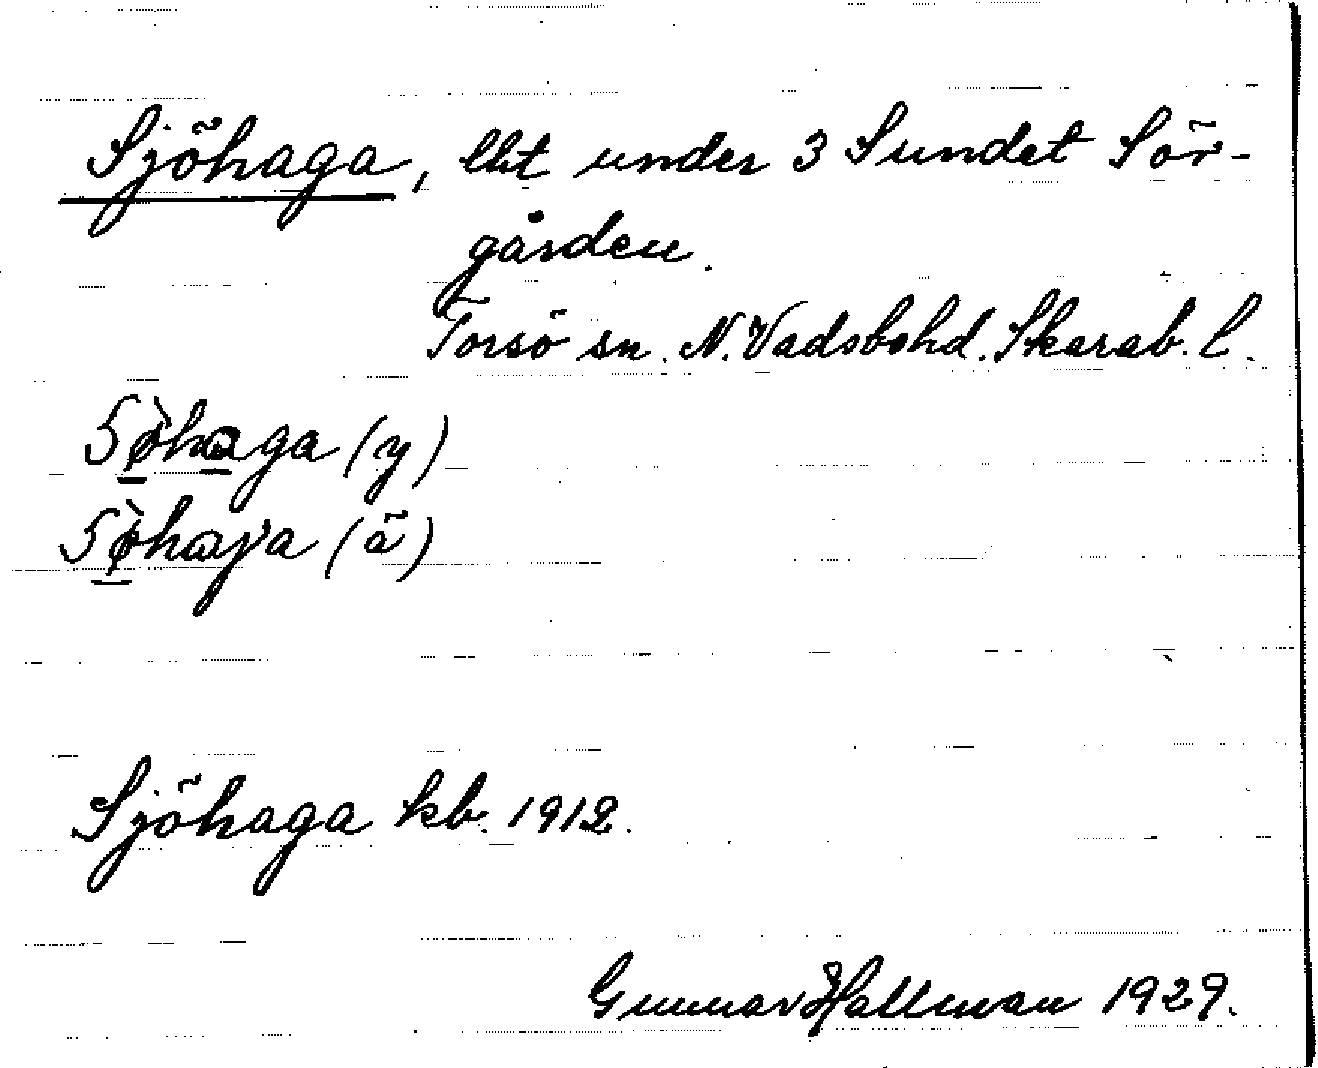 Sjöhaga, lht under 3 Sundet Sör-
gården.
Torsö sn. N. Vadsbohd. Skarab. l.
Sjöhaga kb. 1912.
Gunnar Hallman 1929.